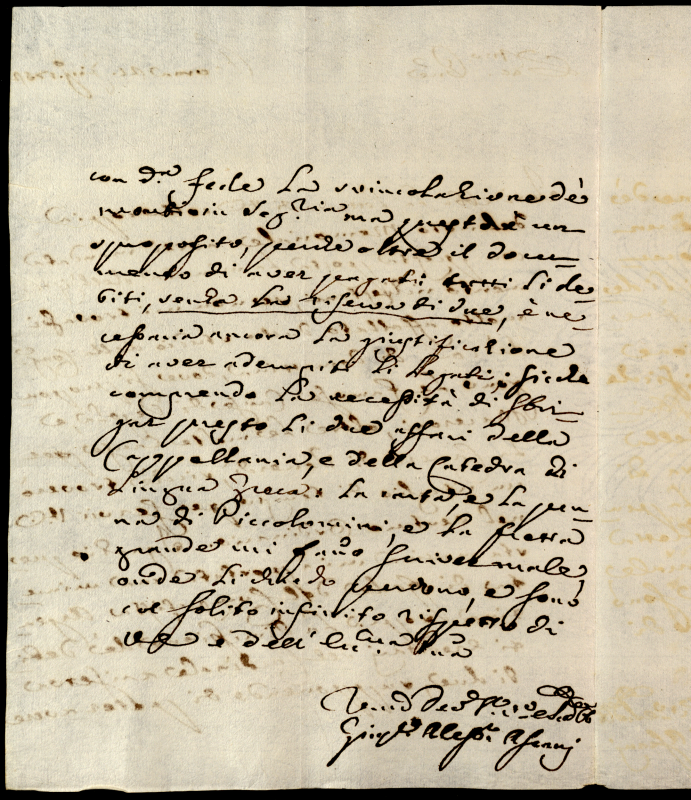 con d.ª fede la svincolazione dè
monti in Seg.ria ma questo è un
sproposito, perche oltre il docu-
mento di aver pagati tutti li de-
biti, senza la riserva di due, è ne-
cessaria ancora la giustificazione
di aver adempiti li legati, sicche
comprendo la necessità di sbri-
gar presto li due affari della
Cappellania, e della Catedra di
Lingua greca. La carta, e la pen-
na di Piccolomini, e la fretta
grande mi fanno scriver male,
onde li chiedo perdono, e sono
col solito infinito rispetto di
VS e dell' Ill.ma sua
Giusep.e Aless.o